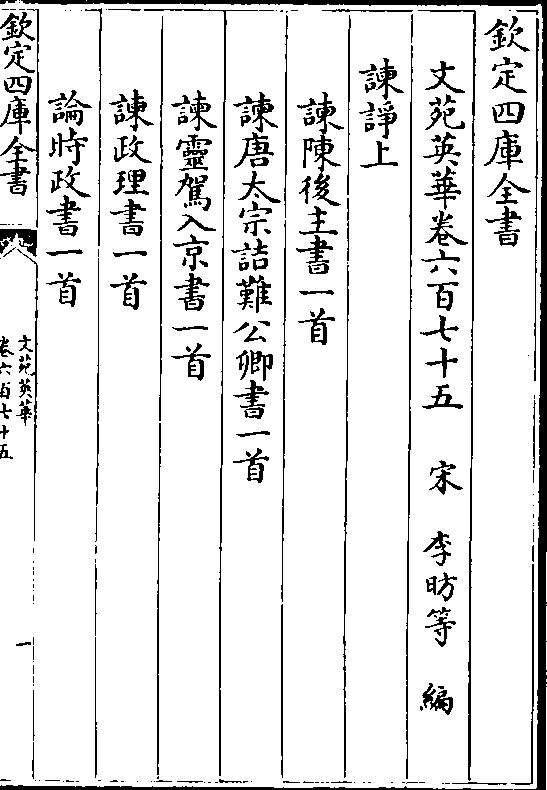 欽定四庫全書
文苑英華卷六百七十五 宋 李昉等 編
諫諍上
諫陳後主書一首
諫唐太宗詰難公卿書一首
諫靈駕入京書一首
諫政理書一首
論時政書一首
欽定四庫全書
文苑英華
卷六百七十五
一